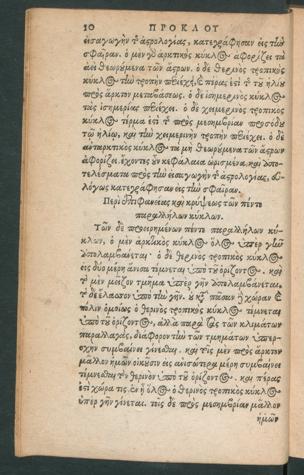 10 ΠΡΟΚΛΟΥ
εἰσαγωγὴν τ̃ ἀστρολογίας, κατεγράφησαν εἰς τὴν
σφαῖραν. ὁ μὲν γὰρ ἀρκτικὸς κύκλος ἀφορίζει τὰ
ἀεὶ θεωρούμενα τῶν ἄστρων. ὁ δὲ θερινὸς τροπικὸς
κύκλος τὴν τροπὴν περιέχει, καὶ πέρας ἐστὶ τ̃ τοῦ ἡλίου
πρὸς ἄρκτον μεταβάσεως. ὁ δὲ ἰσημερινὸς κύκλος
τὰς ἰσημερίας περιέχει. ὁ δὲ χειμερινὸς τροπικὸς
κύκλος τέρμα ἐστὶ τ̃ πρὸς μεσημβρίαν παρόδου
τῷ ἡλίῳ, καὶ τὴν χειμερινὴν τροπὴν περιέχει. ὁ δὲ
ἀνταρκτικὸς κύκλος τὰ μὴ θεωρούμενα τῶν ἄστρων
ἀφορίζει. ἔχοντες οὖν κεφάλαια ὡρισμένα καὶ ἀπο-
τελέσματα πρὸς τὴν εἰσαγωγὴν τ̃ ἀστρολογίας, εὐ-
λόγως κατεγράφησαν εἰς τὴν σφαῖραν.
Περὶ ἐπιφανείας καὶ κρύψεως τῶν πέντε
παραλλήλων κύκλων.
Τῶν δὲ προειρημένων πέντε παραλλήλων κύ-
κλων, ὁ μὲν ἀρκτικὸς κύκλος ὅλος ὑπὲρ γῆν
ἀπολαμβάνεται· ὁ δὲ θερινὸς τροπικὸς κύκλος
εἰς δύο μέρη ἄνισα τέμνεται ὑπὸ τοῦ ὁρίζοντος. καὶ
τ̃ μὲν μεῖζον τμῆμα ὑπὲρ γῆν ἀπολαμβάνεται.
τ̃ δὲ ἔλαττον ὑπὸ τὴν γῆν. οὐ κτ̃ πᾶσαν δὲ χώραν καὶ
πόλιν ὁμοίως ὁ θερινὸς τροπικὸς κύκλος τέμνεται
ὑπὸ τοῦ ὁρίζοντος, ἀλλὰ παρὰ τὰς τῶν κλιμάτων
παραλλαγὰς, διάφορον τὴν τῶν τμημάτων ὑπερο-
χὴν συμβαίνει γίνεσθαι. καὶ τοῖς μὲν πρὸς ἄρκτον
μᾶλλον ἡμῶν οἰκοῦσιν εἰς ἀνισώτερα μέρη συμβαίνει
τέμνεσθαι τὸν θερινὸν ὑπὸ τοῦ ὁρίζοντος. καὶ πέρας
ἐστὶ χώρα τις, ἐν ᾗ ὅλος ὁ θερινὸς τροπικὸς κύκλος
ὑπὲρ γῆν γίνεται. τοῖς δὲ πρὸς μεσημβρίαν μᾶλλον
ἡμῶν